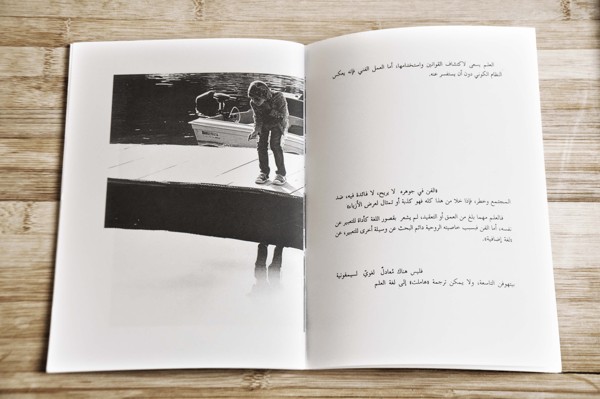 العلم يسعى لاكتشاف القوانين واستخدامها، أما العمل الفني فإنه يعكس
النظام الكوني دون أن يستفسر عنه.
«الفن في جوهره لا يريح، لا فائدة فيه، ضد
المجتمع وخطر، فإذا خلا من هذا كله فهو كذبة أو تمثال لعرض الأزياء»
فالعلم مهما بلغ من العمق أو التعقيد، لم يشعر بقصور اللغة كأداة للتعبير عن
نفسه، أما الفن فبسبب خاصيته الروحية دائم البحث عن وسيلة أخرى للتعبير، عن
«لغة إضافية».
فليس هناك مُعادلٌ لغويّ لسيمفونية
بيتهوفن التاسعة، ولا يمكن ترجمة «هاملت» إلى لغة العلم